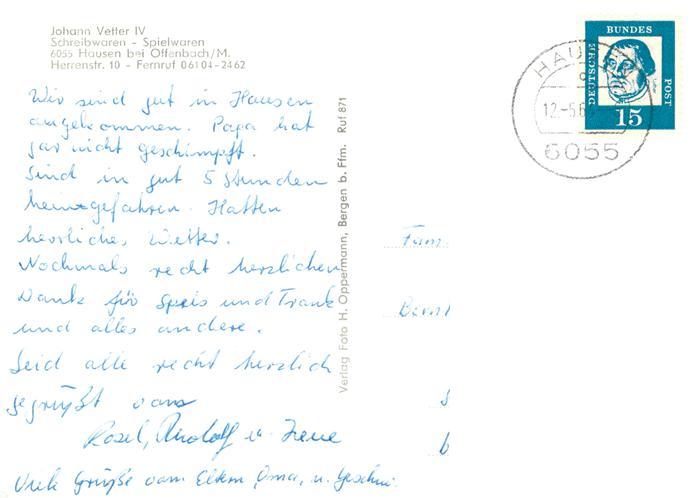 Johann Vetter IV
Schreibwaren - Spielwaren
6055 Hausen bei Offenbach/M.
Herrenstr. 10 - Fernruf 06104-2462
Wir sind gut in Hausen
angekommen. Papa hat
gar nicht geschimpft.
Sind in gut 5 Stunden
heimgefahren. Hatten
herrliches Wetter.
Nochmals recht herzlichen
Dank für Speis und Trank
und alles andere.
Seid alle recht herzlich
gegrüßt von
Rosel, Rudolf u. Irene
Viele Grüße von Eltern, Oma, u. Geschw.
Verlag Foto H. Oppermann, Bergen b. Ffm. Ruf 871
DEUTSCHE
BUNDES
POST
15
HAU
12.-5.6
6055
Fam.